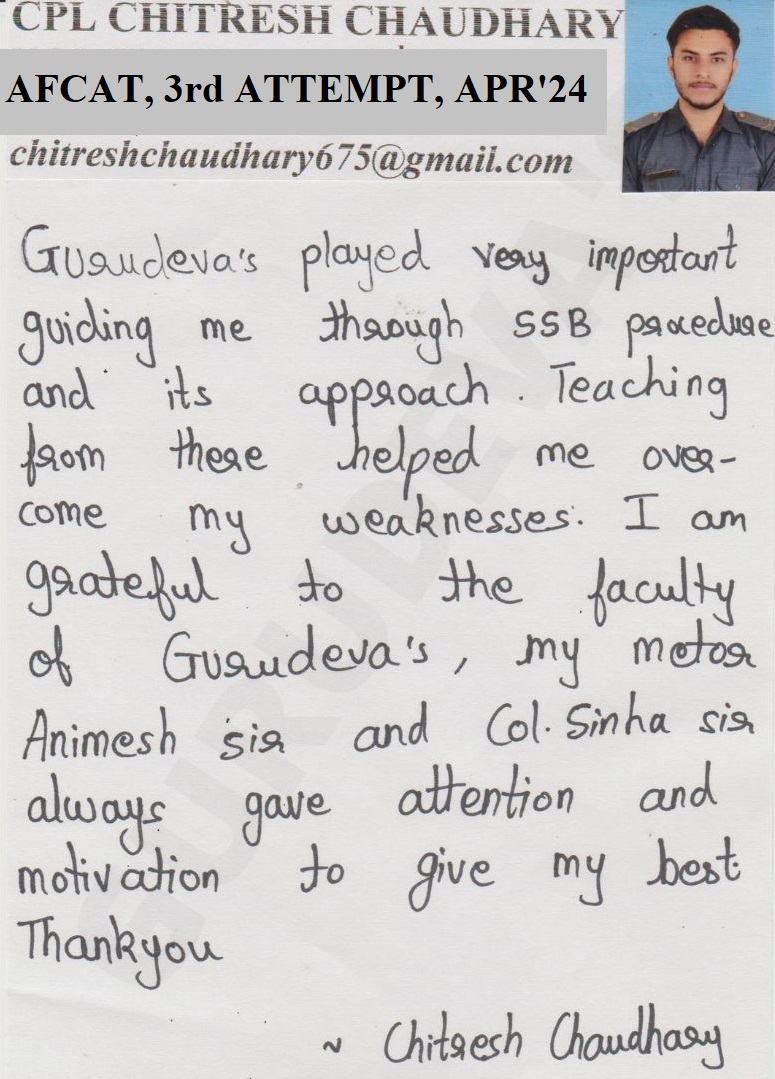 CPL CHITRESH CHAUDHARY
AFCAT, 3rd ATTEMPT, APR'24
chitreshchaudhary675@gmail.com
Gurudeva's played very important
guiding me through SSB procedure
and its approach. Teaching
from there helped me over-
come my weaknesses. I am
grateful to the faculty
of Gurudeva's, my metor
Animesh sir and Col. Sinha sir
always gave attention and
motivation to give my best.
Thankyou
~ Chitresh Chaudhary
GURUDEVA'S